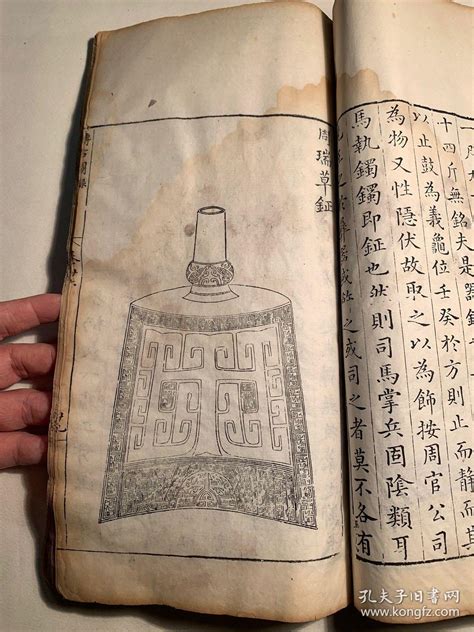 十四斤無銘夫是
以止鼓為義龜位壬癸於方則止而靜而其
為物又性隱伏故取之以為飾按周官公司
馬執鐲鐲即鉦也然則司馬掌兵固陰類耳
之或司之者莫不各有
周瑞草鉦
博古圖錄
孔夫子旧书网
www.kongfz.com